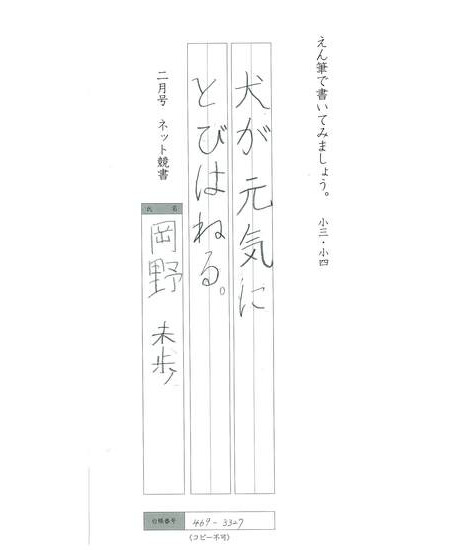 えん筆で書いてみましょう。 小三・小四
犬が元気に
とびはねる。
二月号 ネット競書
氏名
岡野 未歩
台帳番号 469-3327
(コピー不可)